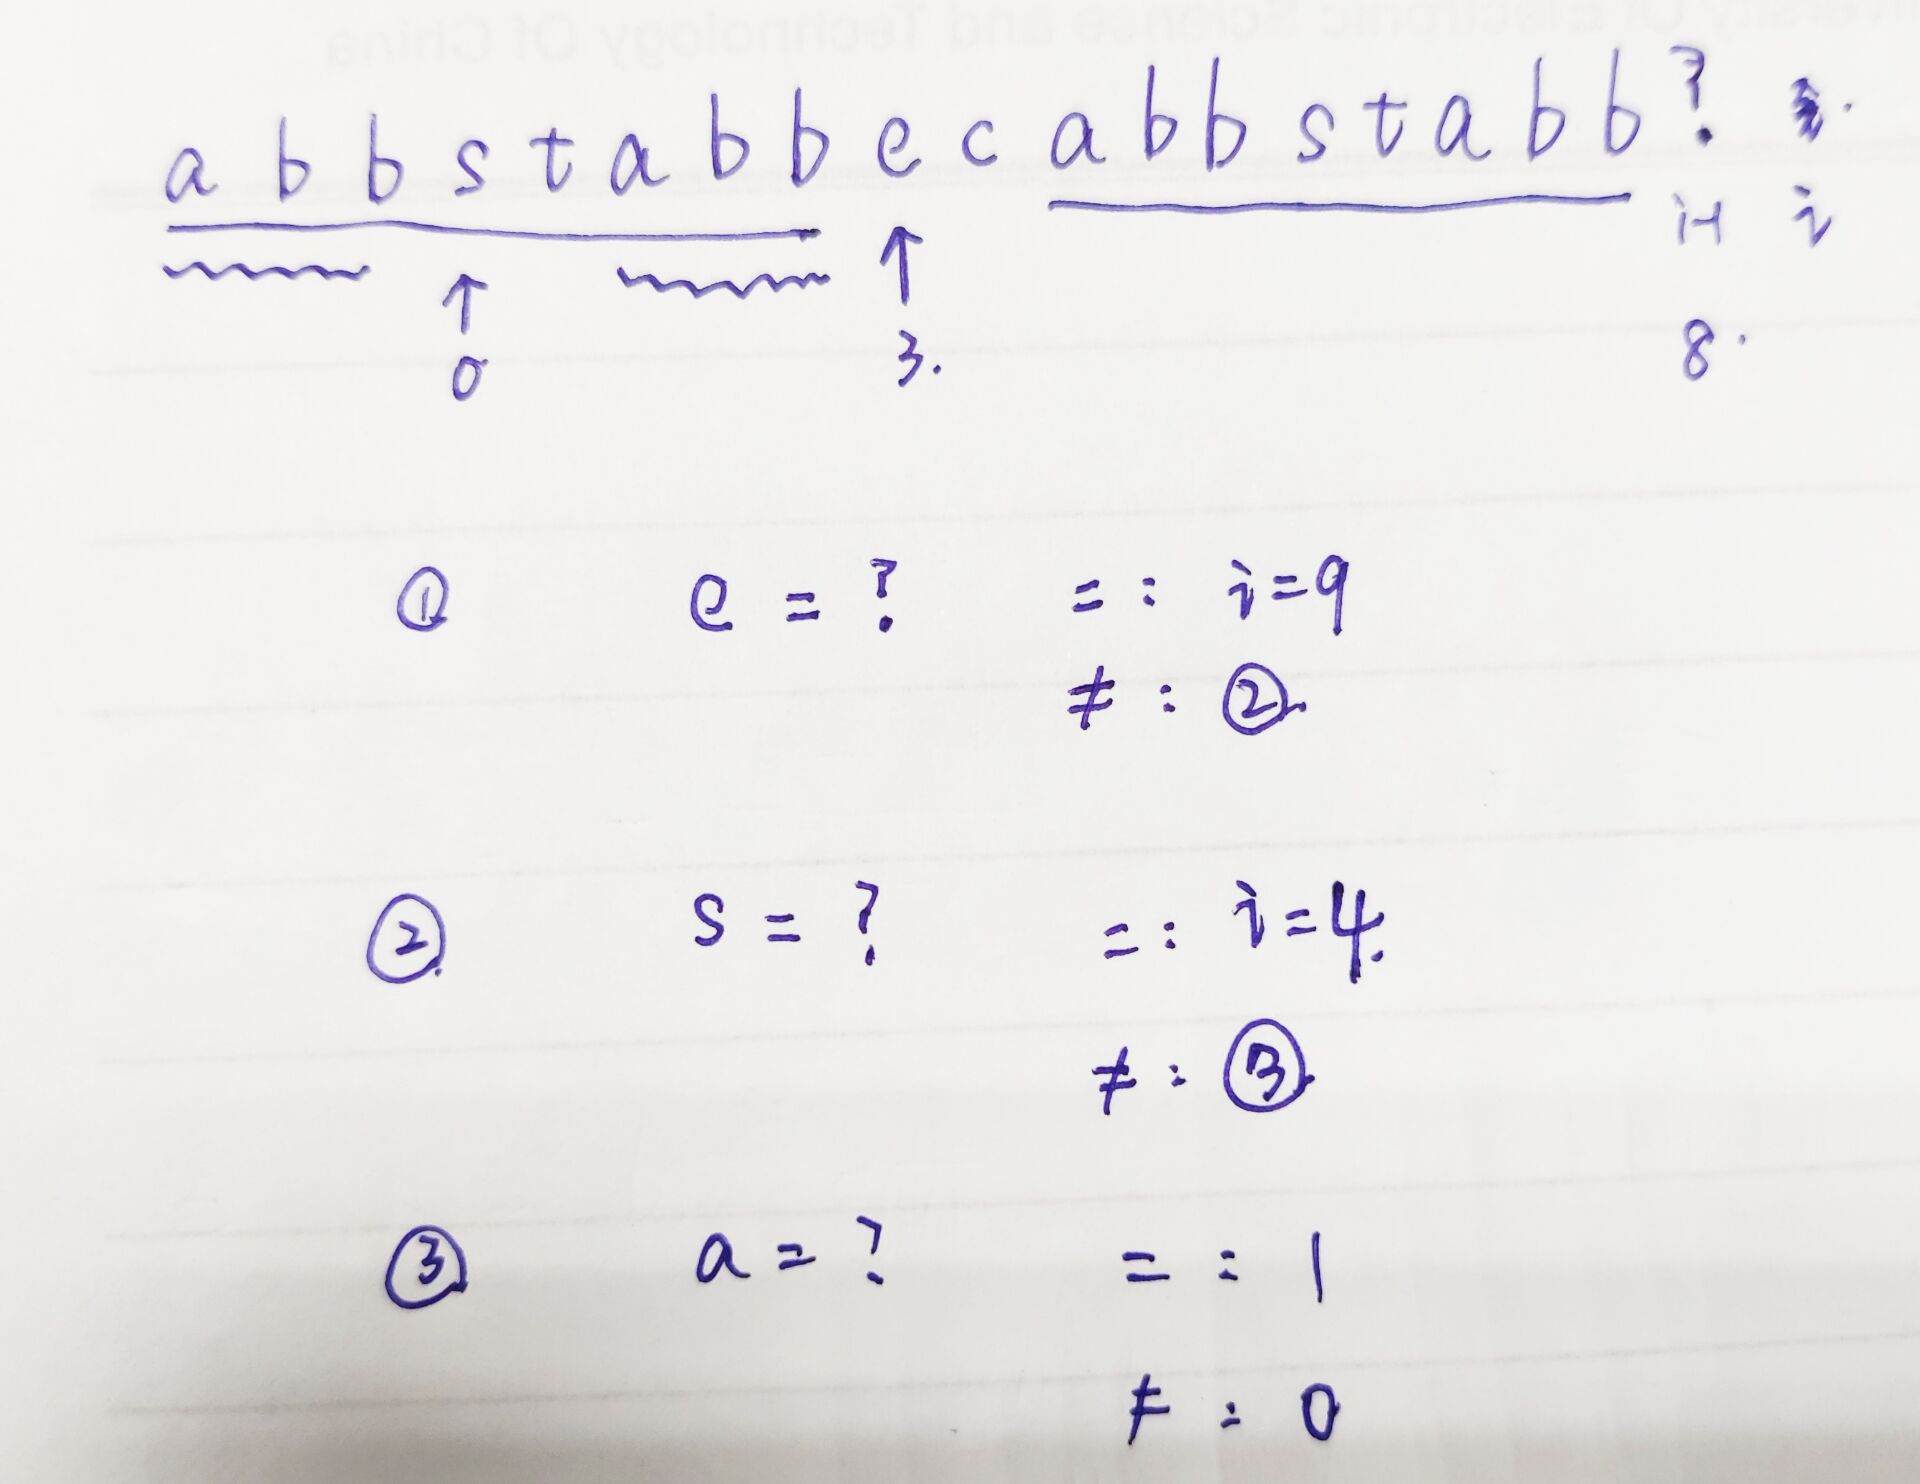 University Of Electronic Science and Technology Of China
a b b s t a b b e c a b b s t a b b ?
i-1 i
↑ ↑
0 3. 8.
① e = ? = : i=9
≠ : ②.
② s = ? = : i=4.
≠ : ③
③ a = ? = : 1
≠ : 0